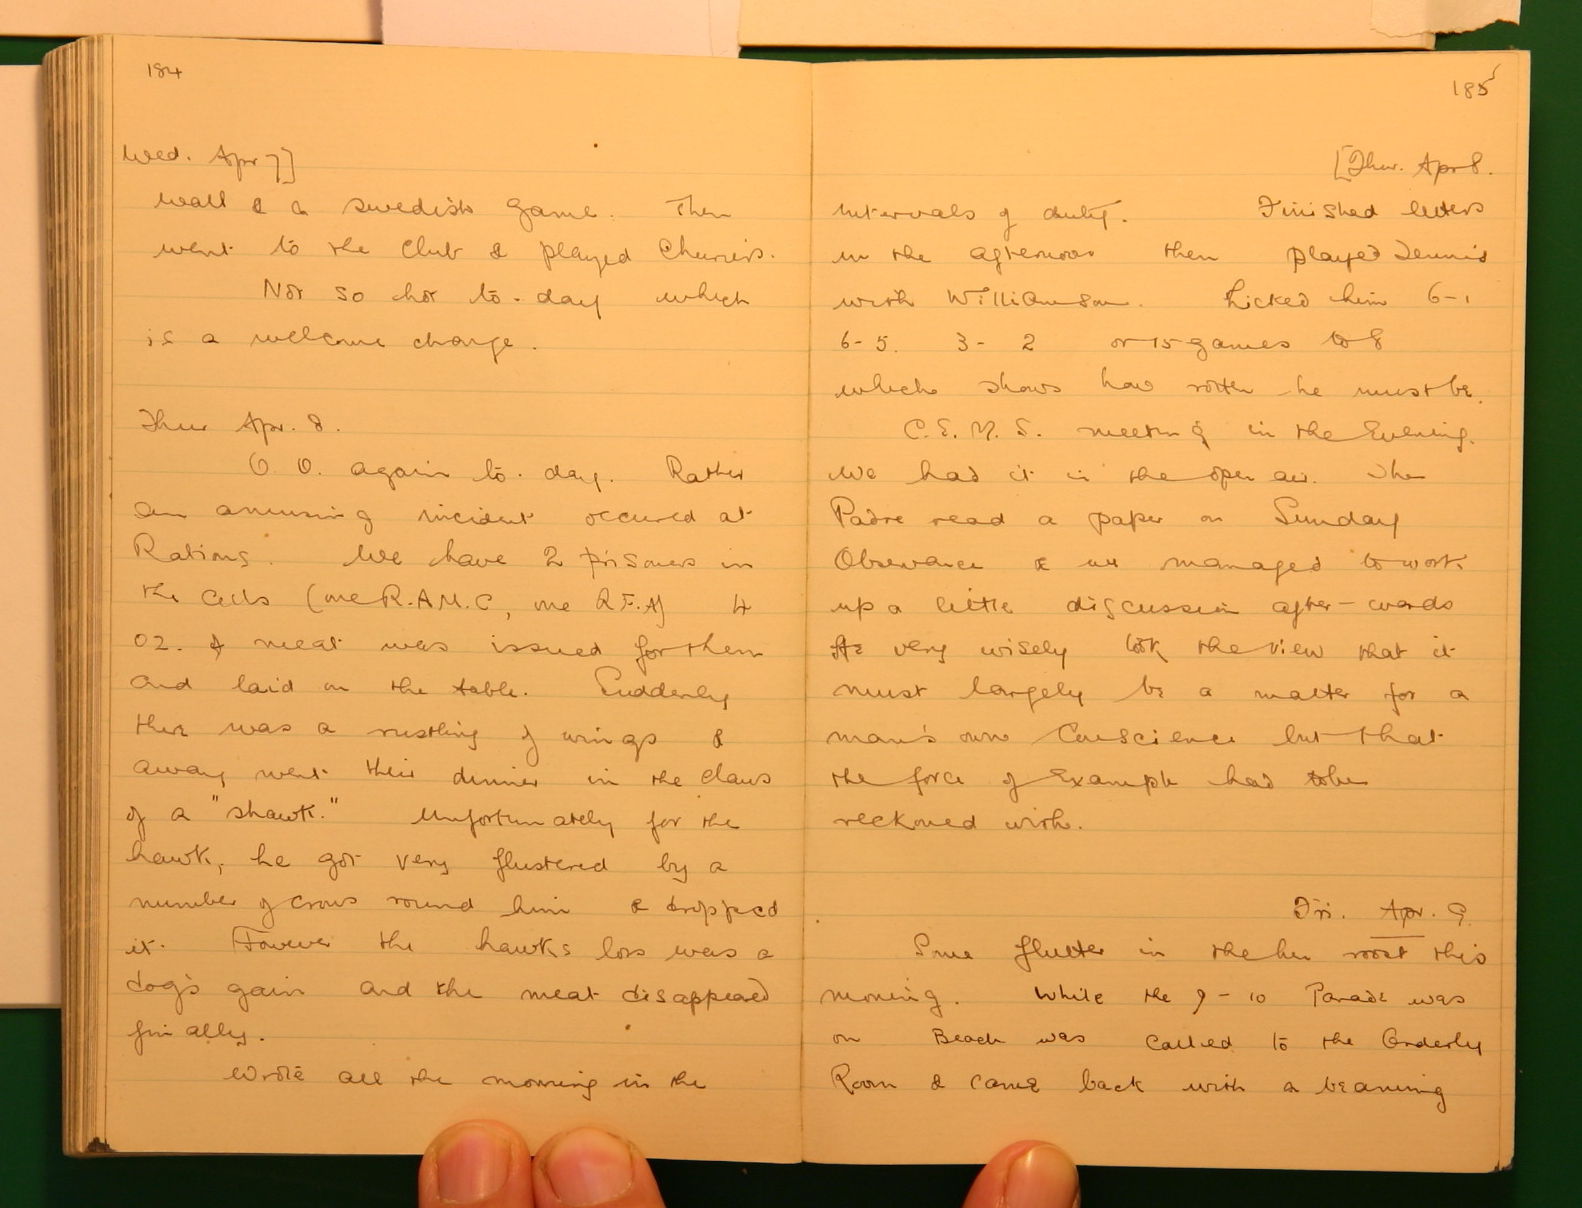 184
Wed. Apr 7]
wall & a Swedish game. Then
went to the Club & played Chemin's.
Not so hot to-day which
is a welcome change.
Thur Apr. 8.
O. O. again to-day. Rather
an amusing incident occured at
Rations. We have 2 prisoners in
the cells (one R.A.M.C, one R.F.A) 4
oz. of meat was issued for them
and laid on the table. Suddenly
there was a rustling of wings &
away went their dinner in the claws
of a "shawk." Unfortunately for the
hawk, he got very flustered by a
number of crows round him & dropped
it. However the hawks loss was a
dog's gain and the meat disappeared
finally.
Wrote all the morning in the
185
[Thur. Apr 8.
intervals of duty. Finished letters
in the afternoon then played Tennis
with Williamson. Licked him 6-1
6-5. 3-2 or 15 games to 8
which shows how rotten he must be.
C.E.M.S. meeting in the Evening.
We had it in the open air. The
Padre read a paper on Sunday
Observance & we managed to work
up a little discussion after-wards
He very wisely took the view that it
must largely be a matter for a
man's own Conscience but that
the force of Example had to be
reckoned with.
Fri. Apr. 9.
Some flutter in the hen roost this
morning. While the 9-10 Parade was
on Beach was called to the Orderly
Room & came back with a beaming